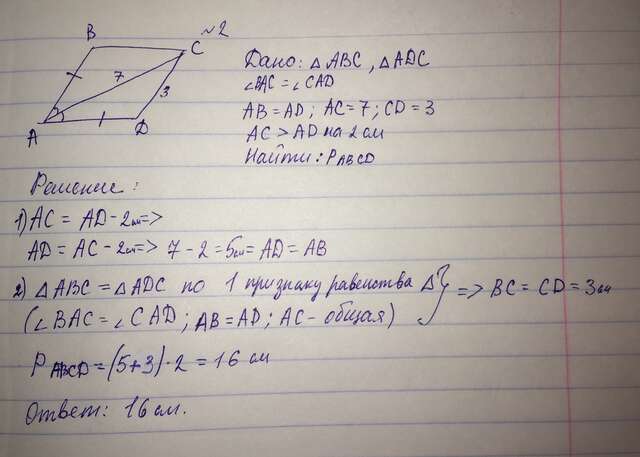 №2
B
C
7
3
A
D
Дано: △ABC, △ADC
∠BAC = ∠CAD
AB = AD; AC = 7; CD = 3
AC > AD на 2 см
Найти: P ABCD
Решение:
1) AC = AD - 2см =>
AD = AC - 2см => 7 - 2 = 5см = AD = AB
2) △ABC = △ADC по 1 признаку равенства △ } => BC = CD = 3см
(∠BAC = ∠CAD; AB = AD; AC - общая)
P ABCD = (5+3)·2 = 16 см
Ответ: 16 см.